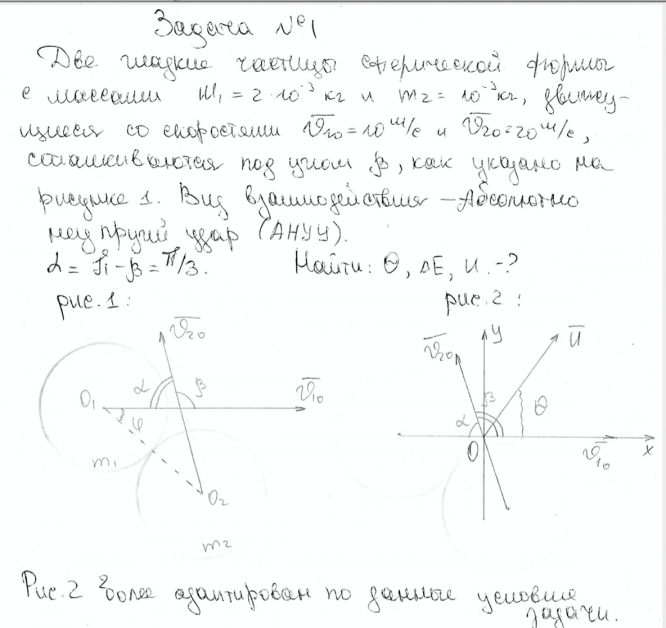 Задача №1
Две гладкие частицы сферической формы
с массами m₁ = 2·10⁻³ кг и m₂ = 10⁻³ кг, движу-
щиеся со скоростями v̅₁₀ = 10 м/с и v̅₂₀ = 20 м/с,
сталкиваются под углом β, как указано на
рисунке 1. Вид взаимодействия – Абсолютно
неупругий удар (АНУУ).
α = π - β = π/3. Найти: θ, ΔE, u. -?
рис. 1: рис. 2:
v̅₂₀
O₁ α β v̅₁₀
φ
m₁
O₂
m₂
v̅₂₀ y u̅
α β θ
O v̅₁₀ x
Рис. 2 более адаптирован по данные условие
задачи.